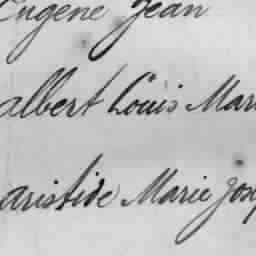 Eugène Jean
albert Louis Mari
aristide Marie Josep